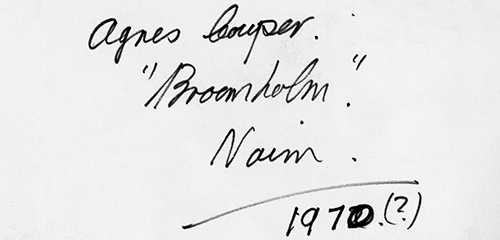 Agnes Couper.
"Broomholm".
Nairn.
1970.(?)